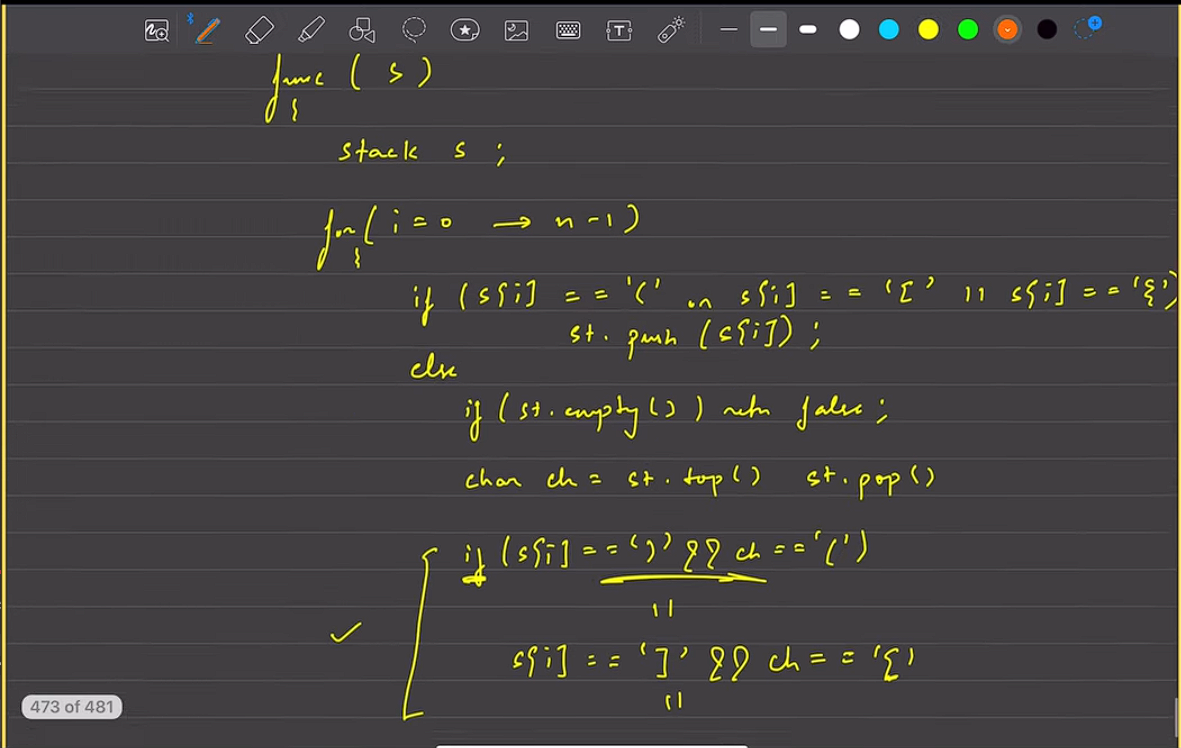 func ( s )
{
stack s ;
for( i = 0 → n - 1 )
{
if ( s[i] == '(' or s[i] == '[' || s[i] == '{' )
st. push ( s[i] ) ;
else
if ( st. empty() ) retn false ;
char ch = st. top() st. pop()
if ( s[i] == ')' && ch == '(' )
||
s[i] == ']' && ch == '['
||
473 of 481